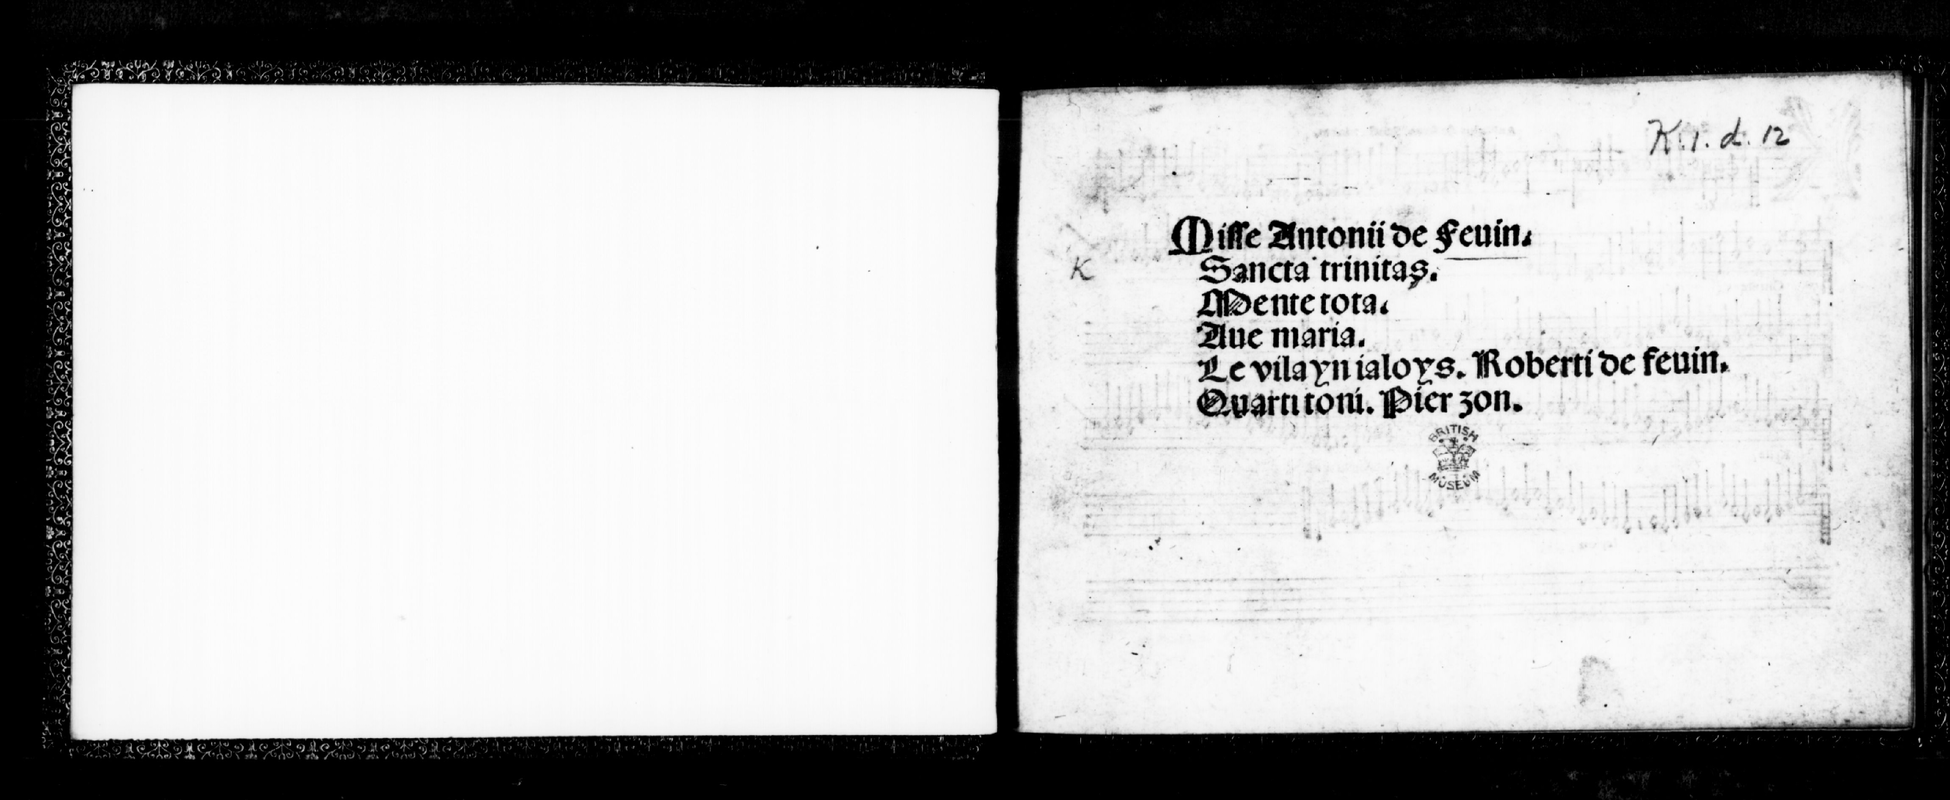 K.1.d.12
Misse Antonii de Feuin.
K
Sancta trinitas.
Mente tota.
Aue maria.
Le vilayn ialoys. Roberti de feuin.
Quarti toni. Pier zon.
BRITISH
MUSEUM